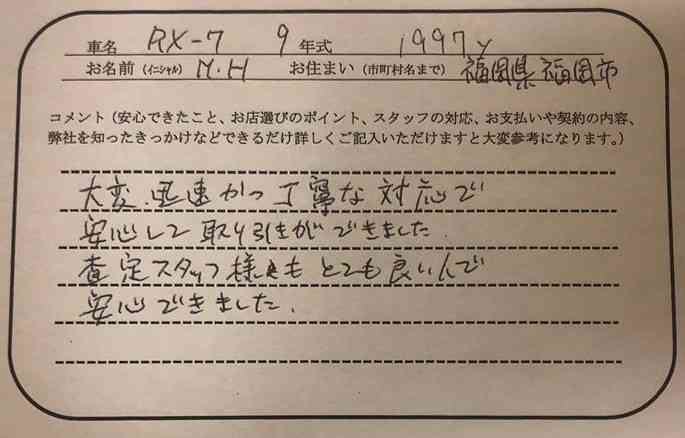 車名 RX-7 9 年式 1997y
お名前 (イニシャル) M.H お住まい (市町村名まで) 福岡県福岡市
コメント (安心できたこと、お店選びのポイント、スタッフの対応、お支払いや契約の内容、
弊社を知ったきっかけなどできるだけ詳しくご記入いただけますと大変参考になります。)
大変、迅速かつ丁寧な対応で
安心して取り引きができました.
査定スタッフ様もとても良い人で
安心できました.